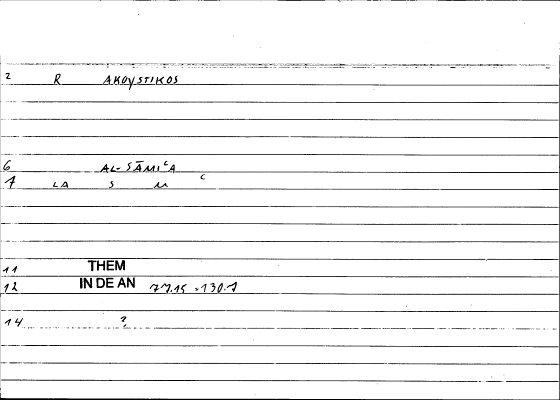 2 R AKOYSTIKOS
6 AL-SĀMIʿA
7 LA S M ʿ
11 THEM
12 IN DE AN 77.15 -130.7
14 ?